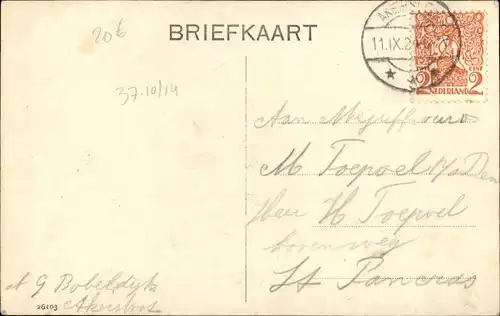 20€
BRIEFKAART
37.10/14
11.IX.2
2 CENT 2
NEDERLAND
Aan Mejuffrouw
M Toepoel p/a Den
Heer H Toepoel
bovenweg
St Pancras
A G Bobeldyk
Akersloot
26103